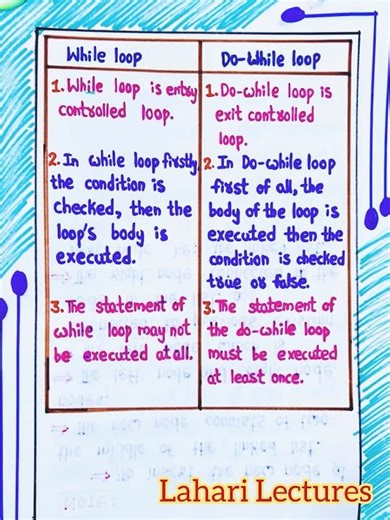 While loop
1. While loop is entry
controlled loop.
2. In while loop firstly
the condition is
checked, then the
loop's body is
executed.
3. The statement of
while loop may not
be executed at all.
Do-While loop
1. Do-while loop is
exit controlled
loop.
2. In Do-while loop
first of all, the
body of the loop is
executed then the
condition is checked
true or false.
3. The statement of
the do-while loop
must be executed
at least once.
Lahari Lectures